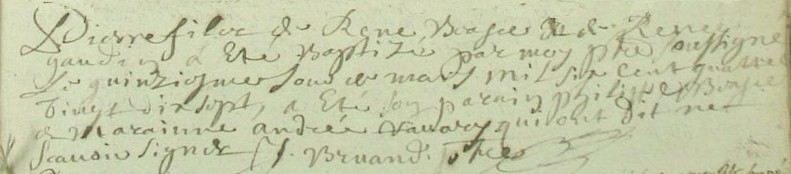 Pierre fils de René Brasce & de Renee
gaudin a Eté Baptizé par moy ptre soussigné
Le quinziesme Jour de mars mil six Cent quatre
vingt dix sept, a Eté son parain philipe Brasce
& Marainne andrée Vavary qui ont dit ne
Scavoir Signer J. Bruand ptre